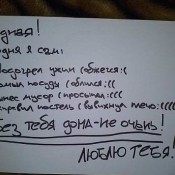 дная!
одня я сам:
Подогрел ужин (обжегся:(
омыл посуды (облился:((
нес мусор (просыпал:(((
правил постель (вывихнул плечо:((((
Без тебя дома-не очень!
ЛЮБЛЮ ТЕБЯ!